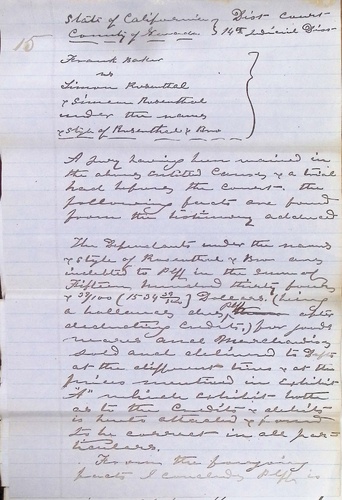 State of California } Dist Court
County of Nevada } 14th Judicial Dist
15
Frank Baker
vs
Simon Rosenthal
& Simeon Rosenthal
under the name
& style of Rosenthal & Bro
A Jury having been waived in
the above entitled Cause, & a trial
had before the Court. the
following facts are found
from the testimony adduced
The Defendants under the name
& style of Rosenthal & Bro are
indebted to Plff in the sum of
Fifteen hundred thirty four
& 39/100 (1534 39/100) Dollars. (being
a balance due Plff after
deducting Credits,) for goods
wares and Merchandise
sold and delivered to Defts
at the different times & at the
prices mentioned in Exhibit
"A" which exhibit both
as to the Credits & debits
is hereto attached & found
to be correct in all par-
ticulars.
From the foregoing
facts I conclude Plff is